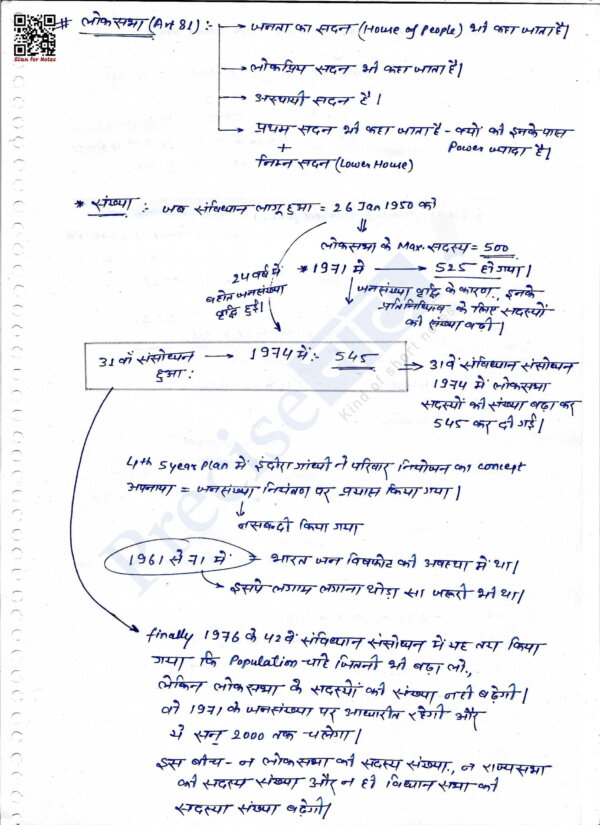 Scan For Notes
# लोकसभा (Art 81) :- → जनता का सदन (House of People) भी कहा जाता है।
→ लोकप्रिय सदन भी कहा जाता है।
→ अस्थायी सदन है।
→ प्रथम सदन भी कहा जाता है - क्यों की इनके पास
+ Power ज्यादा है।
निम्न सदन (Lower House)
* संख्या :- जब संविधान लागू हुआ = 26 Jan 1950 को
⇓
लोकसभा के Max. सदस्य = 500
24 वर्ष में * 1971 मे → 525 हो गया।
बहोत जनसंख्या
वृद्धि हुई।
जनसंख्या वृद्धि के कारण, इनके
प्रतिनिधित्व के लिए सदस्यों
की संख्या बढ़ी।
31 वां संसोधन → 1974 में :- 545
हुआ :
→ 31 वें संविधान संसोधन
1974 में लोकसभा
सदस्यों की संख्या बढ़ा कर
545 कर दी गई।
4th 5 year Plan में इंदीरा गांधी ने परिवार नियोजन का concept
अपनाया = जनसंख्या नियंत्रण पर प्रयास किया गया।
↓
नसबन्दी किया गया
1961 से 71 में → भारत जन विषफोट की अवस्था में था।
→ इसपे लगाम लगाना थोड़ा सा जरूरी भी था।
→ finally 1976 के 42 वें संविधान संसोधन में यह तय किया
गया कि Population चाहे जितनी भी बढ़ा लो.,
लेकिन लोकसभा के सदस्यों की संख्या नही बढ़ेगी।
वो 1971 के जनसंख्या पर आधारीत रहेगी और
ये सन् 2000 तक चलेगा।
इस बीच - न लोकसभा की सदस्य संख्या, न राज्यसभा
की सदस्य संख्या और न ही विधान सभा की
सदस्या संख्या बढ़ेगी।
Precise
Kind of short n